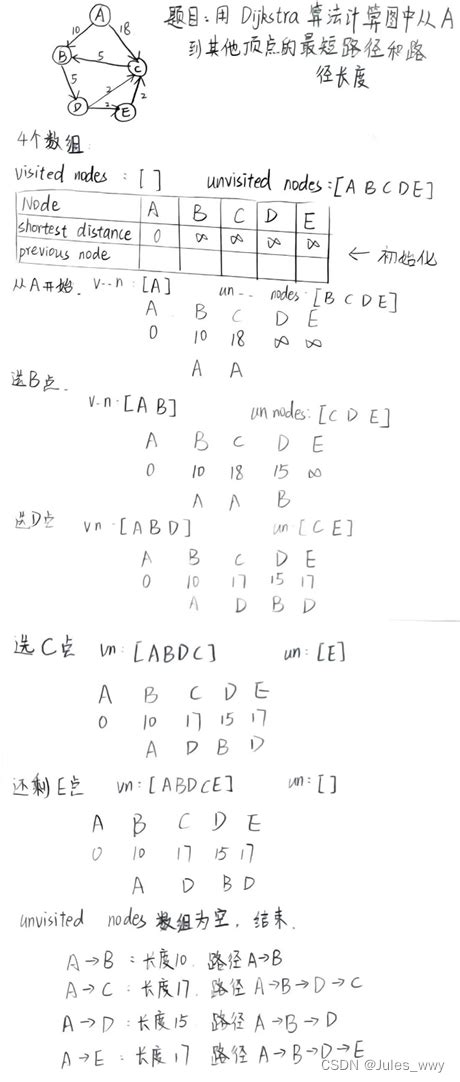 题目：用 Dijkstra 算法计算图中从A
到其他顶点的最短路径和路
径长度
A
10 18
B 5 C
5 2 2
D 2 E
4个数组
visited nodes : [ ] unvisited nodes:[A B C D E]
Node A B C D E
shortest distance 0 ∞ ∞ ∞ ∞
previous node
← 初始化
从A开始. v--n:[A] un-- nodes:[B C D E]
A B C D E
0 10 18 ∞ ∞
A A
选B点.
v-n.[A B] un nodes:[C D E]
A B C D E
0 10 18 15 ∞
A A B
选D点 vn:[A B D] un:[C E]
A B C D E
0 10 17 15 17
A D B D
选C点 vn:[ABDC] un:[E]
A B C D E
0 10 17 15 17
A D B D
还剩E点 vn:[ABDCE] un:[ ]
A B C D E
0 10 17 15 17
A D B D
unvisited nodes 数组为空，结束.
A→B：长度10. 路径A→B
A→C：长度17. 路径 A→B→D→C
A→D：长度15 路径 A→B→D
A→E：长度17 路径 A→B→D→E
CSDN @Jules_wwy